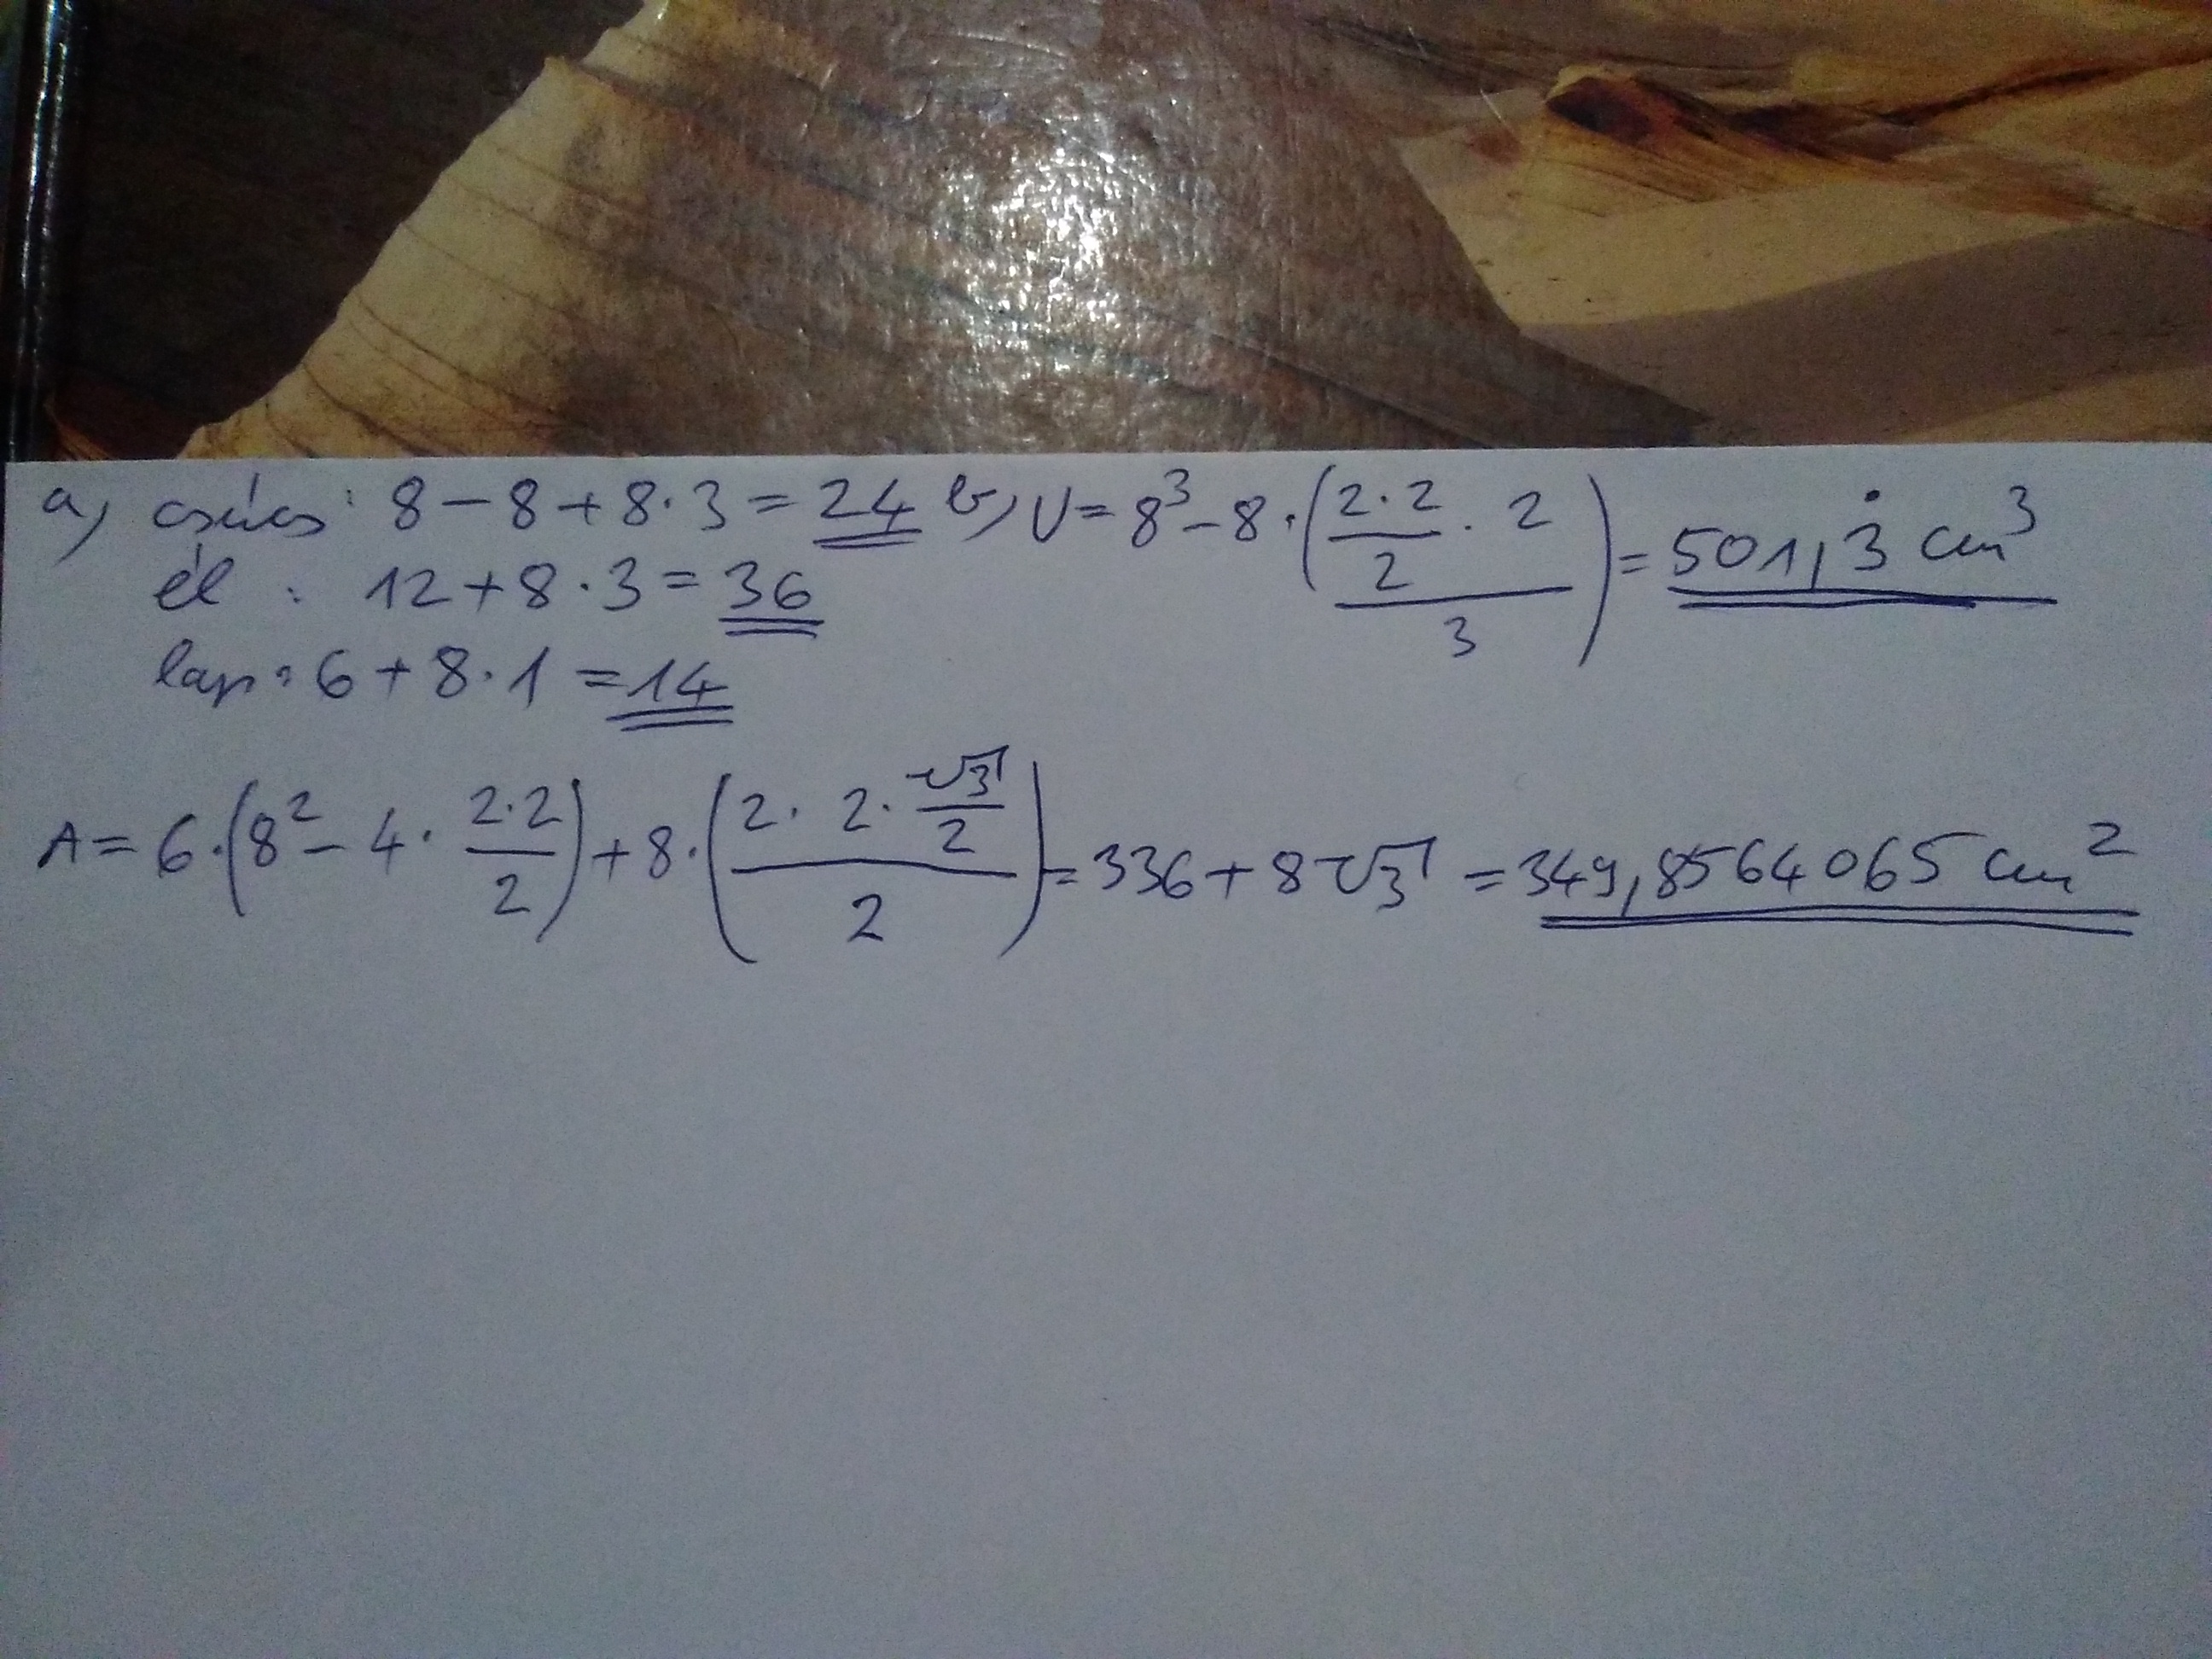 a) csúcs: 8 - 8 + 8 · 3 = 24
él : 12 + 8 · 3 = 36
lap: 6 + 8 · 1 = 14
b) V = 8³ - 8 · ( (2·2)/2 · 2 / 3 ) = 501,3̇ cm³
A = 6 · ( 8² - 4 · (2·2)/2 ) + 8 · ( (2 · 2 · √3/2) / 2 ) = 336 + 8√3 = 349,8564065 cm²